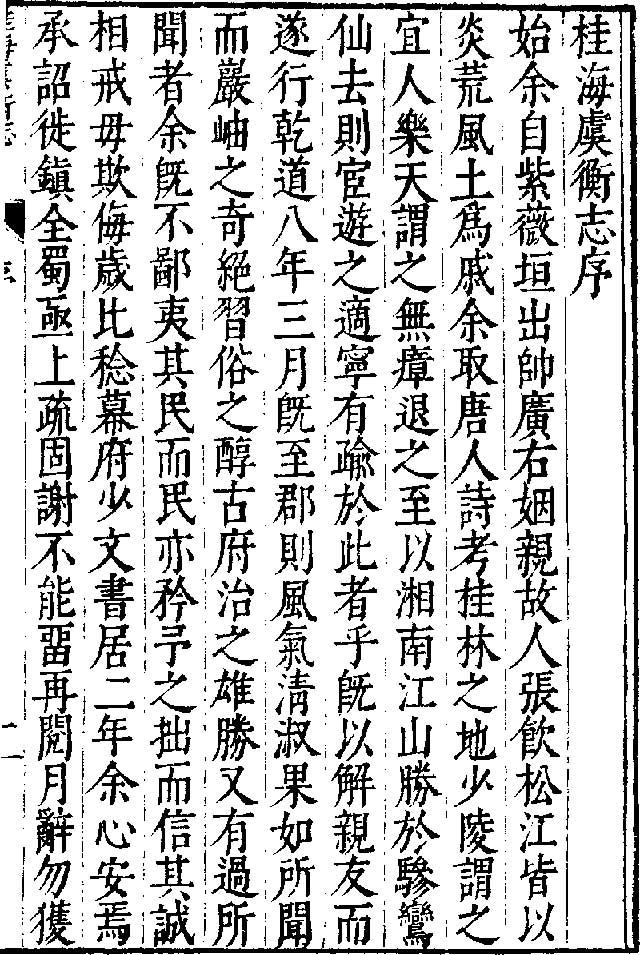 桂海虞衡志序
始余自紫薇垣出帥廣右姻親故人張飲松江皆以
炎荒風土爲戚余取唐人詩考桂林之地少陵謂之
宜人樂天謂之無瘴退之至以湘南江山勝於驂鸞
仙去則宦遊之適寧有踰於此者乎旣以解親友而
遂行乾道八年三月旣至郡則風氣清淑果如所聞
而巖岫之奇絕習俗之醇古府治之雄勝又有過所
聞者余旣不鄙夷其民而民亦矜予之拙而信其誠
相戒毋欺侮歲比稔幕府少文書居二年余心安焉
承詔徙鎮全蜀亟上疏固謝不能畱再閱月辭勿獲
序
一